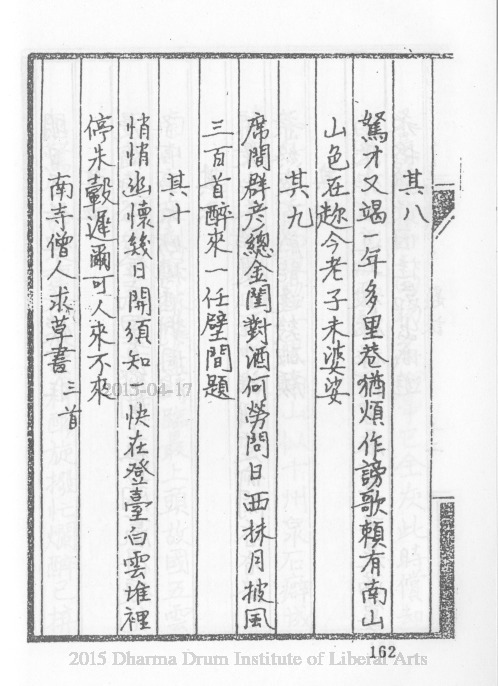 其八
駑才又竭一年多里巷猶煩作謗歌賴有南山
山色在趂今老子未婆娑
其九
席間群彥總金閨對酒何勞問日西抹月披風
三百首醉來一任壁間題
其十
悄悄幽懷幾日開須知一快在登臺白雲堆裡
停朱轂遲爾可人來不來
南寺僧人求草書三首
2015-04-17
162
2015 Dharma Drum Institute of Liberal Arts